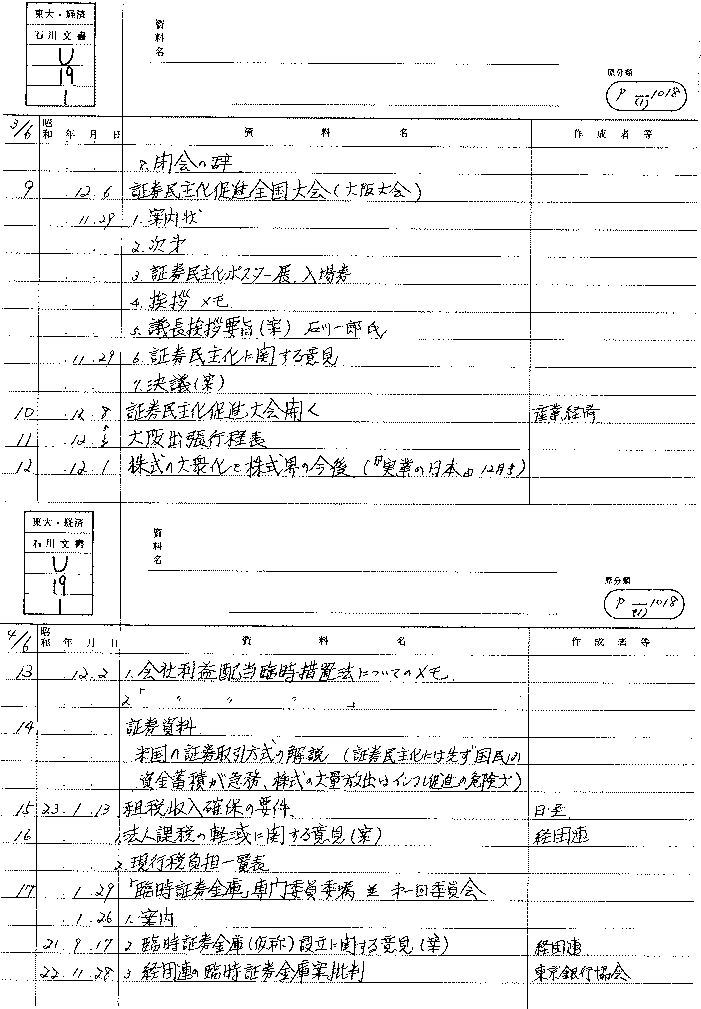 東大・経済
石川文書
U
19
1
資料名
原分類
P (1) 1018
3/6 昭和 年 月 日 資料名 作成者等
8. 閉会の辞
9 12.6 証券民主化促進全国大会(大阪大会)
11.29 1. 案内状
2. 次第
3. 証券民主化ポスター展、入場券
4. 挨拶メモ
5. 議長挨拶要旨(案) 石川一郎氏
11.29 6. 証券民主化に関する意見
7. 決議(案)
10 12.8 証券民主化促進大会開く 産業経済
11 12. 大阪出張行程表
12 12.1 株式の大衆化と株式界の今後(『実業の日本』12月号)
東大・経済
石川文書
U
19
1
資料名
原分類
P (1) 1018
4/6 昭和 年 月 日 資料名 作成者等
13 12.2 1. 会社利益配当臨時措置法についてのメモ
2.「 〃 〃 〃 」
14 証券資料
米国の証券取引方式の解説(証券民主化には先ず国民の
資金蓄積が急務、株式の大量放出はインフレ促進の危険才)
15 23.1.13 租税収入確保の要件 日産
16 1. 法人課税の軽減に関する意見(案) 経団連
2. 現行税負担一覧表
17 1.29 「臨時証券金庫」専門委員委嘱 並 第一回委員会
1.26 1. 案内
21.9.17 2. 臨時証券金庫(仮称)設立に関する意見(案) 経団連
22.11.28 3. 経団連の臨時証券金庫案批判 東京銀行協会